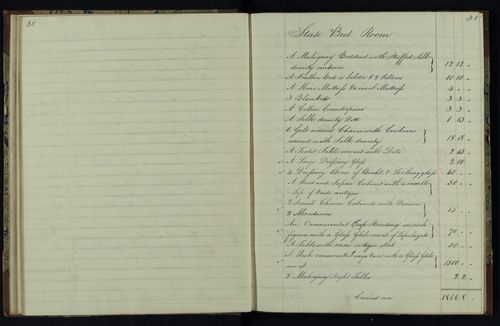 30
31
State Bed Room
A Mahogany Bedstead with Stuffed Silk
damity 12 12 -
A Feather Bed a bolster & 2 Pillows 10 10 -
A Hair Mattress & a wool Mattress
3 Blankets 3 3 -
A Cotton Counterpane 3 3 -
A Silk damity Ditto 1 15 -
6 Gilt armed Chairs with Cushions
covered with Silk damity 18 18 -
A Toilet Table covered with Ditto 2 15 -
A Large Dressing Glass 2 10
4 Dressing Boxes & Looking glass 60 - -
A and Japan Cabinet with a marble
Top of Verde antique 30 - -
2 Small Chinese Cabinets with Drawers
2 Mandarins 15 - -
An Ornamental
figures with a Glass Globe over it 70 - -
A Table with verde antique Slab 50 - -
A Rich ornamental with a Glass Globe
over it 1500 - -
2 Mahogany Night Tables 2 2 -
Carried over 1806 8 -